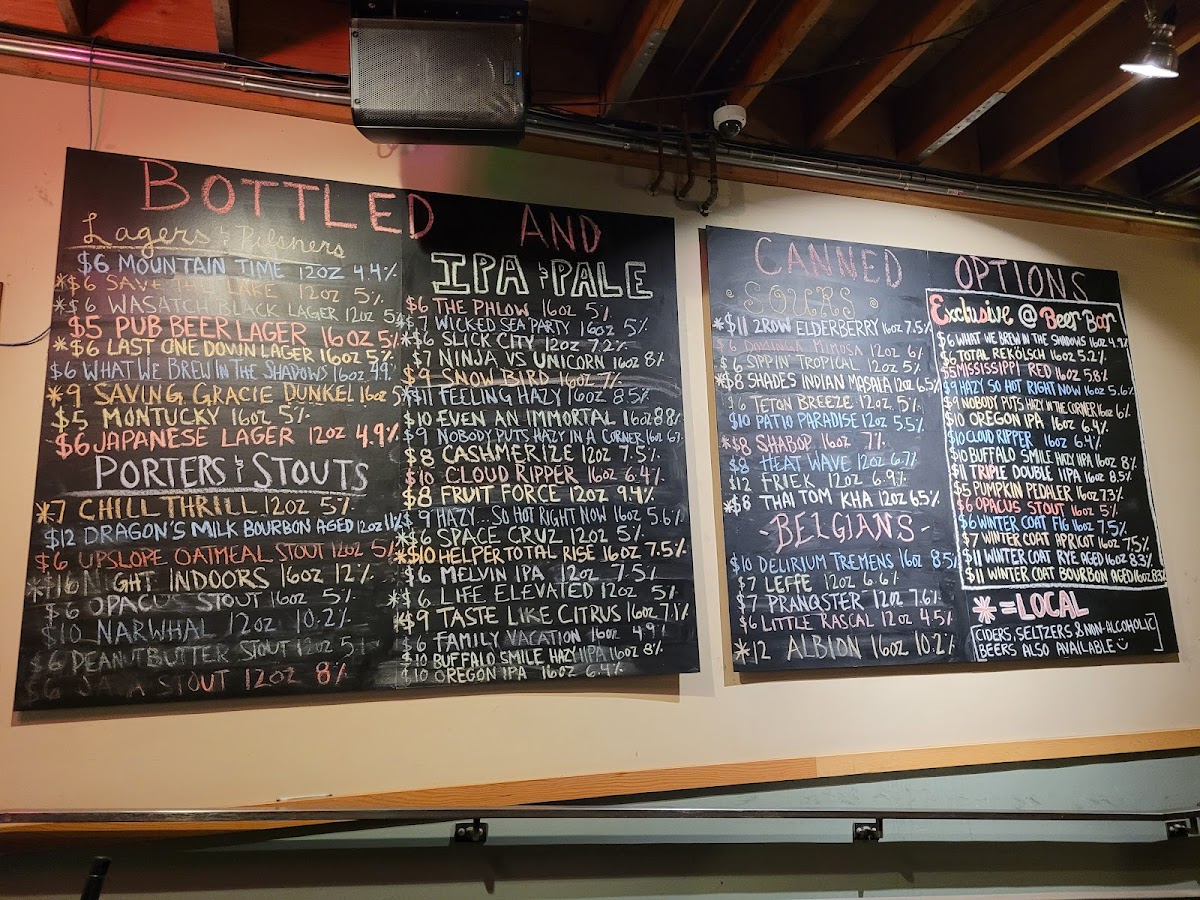 BOTTLED AND
Lagers & Pilsners
$6 MOUNTAIN TIME 12OZ 4.4%
*$6 SAVE THE LAKE 12OZ 5%
*$6 WASATCH BLACK LAGER 12OZ 5%
$5 PUB BEER LAGER 16OZ 5%
*$6 LAST ONE DOWN LAGER 16OZ 5%
$6 WHAT WE BREW IN THE SHADOWS 16OZ 4.9%
*9 SAVING GRACIE DUNKEL 16OZ
$5 MONTUCKY 16OZ 5%
$6 JAPANESE LAGER 12OZ 4.9%
PORTERS & STOUTS
*7 CHILL THRILL 12OZ 5%
$12 DRAGON'S MILK BOURBON AGED 12OZ 11%
$6 UPSLOPE OATMEAL STOUT 12OZ 5%
*$16 NIGHT INDOORS 16OZ 12%
$6 OPACUS STOUT 16OZ 5%
$10 NARWHAL 12OZ 10.2%
$6 PEANUTBUTTER STOUT 12OZ 5.1%
$6 STOUT 12OZ 8%
IPA & PALE
$6 THE PHLOW 16OZ 5%
*$7 WICKED SEA PARTY 16OZ 5%
*$6 SLICK CITY 12OZ 7.2%
$7 NINJA VS UNICORN 16OZ 8%
$9 SNOW BIRD 16OZ 7%
*$11 FEELING HAZY 16OZ 8.5%
$10 EVEN AN IMMORTAL 16OZ 8.8%
$9 NOBODY PUTS HAZY IN A CORNER 16OZ 6%
$8 CASHMERIZE 12OZ 7.5%
$10 CLOUD RIPPER 16OZ 6.4%
$8 FRUIT FORCE 12OZ 9.4%
$9 HAZY...SO HOT RIGHT NOW 16OZ 5.6%
*$6 SPACE CRUZ 12OZ 5%
*$10 HELPER TOTAL RISE 16OZ 7.5%
$6 MELVIN IPA 12OZ 7.5%
*$6 LIFE ELEVATED 12OZ 5%
*$9 TASTE LIKE CITRUS 16OZ 7.1%
$6 FAMILY VACATION 16OZ 4.9%
$10 BUFFALO SMILE HAZY IIPA 16OZ 8%
$10 OREGON IPA 16OZ 6.4%
CANNED OPTIONS
SOURS
*$11 2ROW ELDERBERRY 16OZ 7.5%
$6 DOMINGA MIMOSA 12OZ 6%
$6 SIPPIN' TROPICAL 12OZ 5%
*$8 SHADES INDIAN MASALA 12OZ 6.5%
$6 TETON BREEZE 12OZ 5%
$10 PATIO PARADISE 12OZ 5.5%
*$8 SHABOP 16OZ 7%
$8 HEAT WAVE 12OZ 6.7%
$12 FRIEK 12OZ 6.9%
*$8 THAI TOM KHA 12OZ 6.5%
-BELGIANS-
$10 DELIRIUM TREMENS 16OZ 8.5%
$7 LEFFE 12OZ 6.6%
$7 PRANQSTER 12OZ 7.6%
$6 LITTLE RASCAL 12OZ 4.5%
*12 ALBION 16OZ 10.2%
Exclusive @ Beer Bar
$6 WHAT WE BREW IN THE SHADOWS 16OZ 4.9%
$6 TOTAL REKÖLSCH 16OZ 5.2%
$5 MISSISSIPPI RED 16OZ 5.8%
$9 HAZY SO HOT RIGHT NOW 16OZ 5.6%
$9 NOBODY PUTS HAZY IN THE CORNER 16OZ 6%
$10 OREGON IPA 16OZ 6.4%
$10 CLOUD RIPPER 16OZ 6.4%
$10 BUFFALO SMILE HAZY IIPA 16OZ 8%
$11 TRIPLE DOUBLE IIPA 16OZ 8.5%
$5 PUMPKIN PEDALER 16OZ 7.3%
$6 OPACUS STOUT 16OZ 5%
$6 WINTER COAT FIG 16OZ 7.5%
$7 WINTER COAT APRICOT 16OZ 7.5%
$11 WINTER COAT RYE AGED 16OZ 8.3%
$11 WINTER COAT BOURBON AGED 16OZ 8.3%
*=LOCAL
[CIDERS, SELTZERS & NON-ALCOHOLIC
BEERS ALSO AVAILABLE ☺]